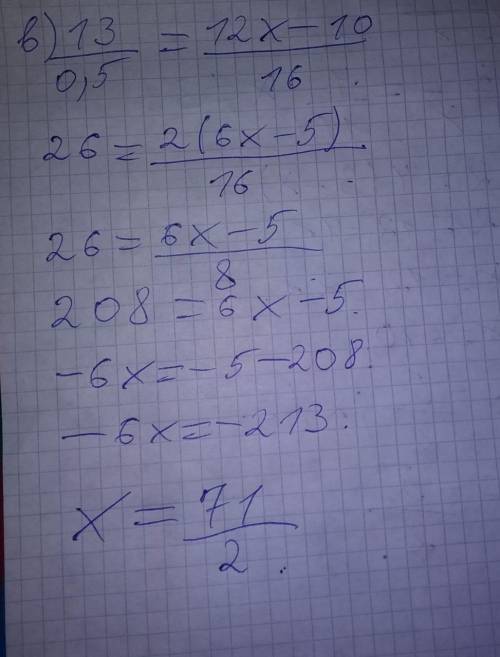 в) 13/0,5 = 12x-10/16
26 = 2(6x-5)/16
26 = 6x-5/8
208 = 6x-5.
-6x=-5-208.
-6x=-213.
x = 71/2.